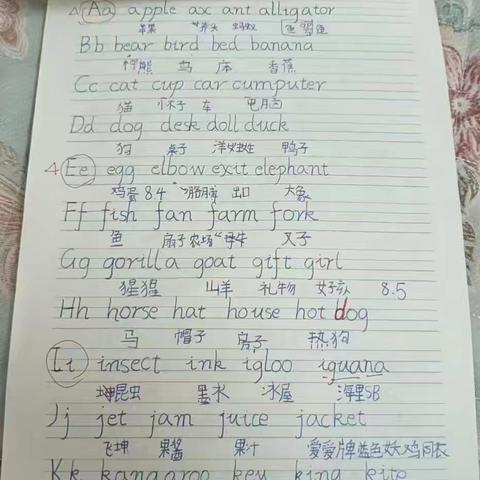 Aa apple ax ant alligator
苹果 斧头 蚂蚁
Bb bear bird bed banana
鸟 床 香蕉
Cc cat cup car cumputer
猫 杯子 车 电脑
Dd dog desk doll duck
狗 桌子 洋娃娃 鸭子
4 Ee egg elbow exit elephant
鸡蛋 8.4 出口 大象
Ff fish fan farm fork
鱼 扇子 农场 叉子
Gg gorilla goat gift girl
猩猩 山羊 礼物 女孩 8.5
Hh horse hat house hot dog
马 帽子 房子 热狗
Ii insect ink igloo iguana
昆虫 墨水 冰屋
Jj jet jam juice jacket
飞 果酱 果汁
Kk kangaroo key king kite